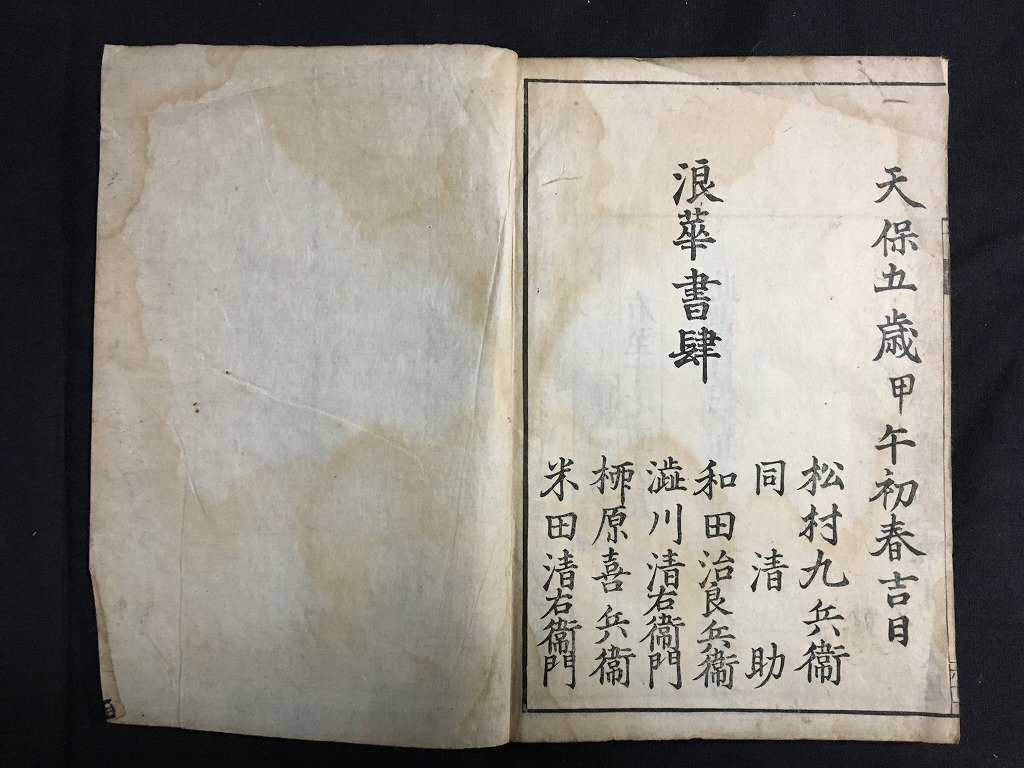 天保五歳甲午初春吉日
浪華書肆
松村九兵衞
同清助
和田治良兵衞
澁川清右衞門
柳原喜兵衞
米田清右衞門